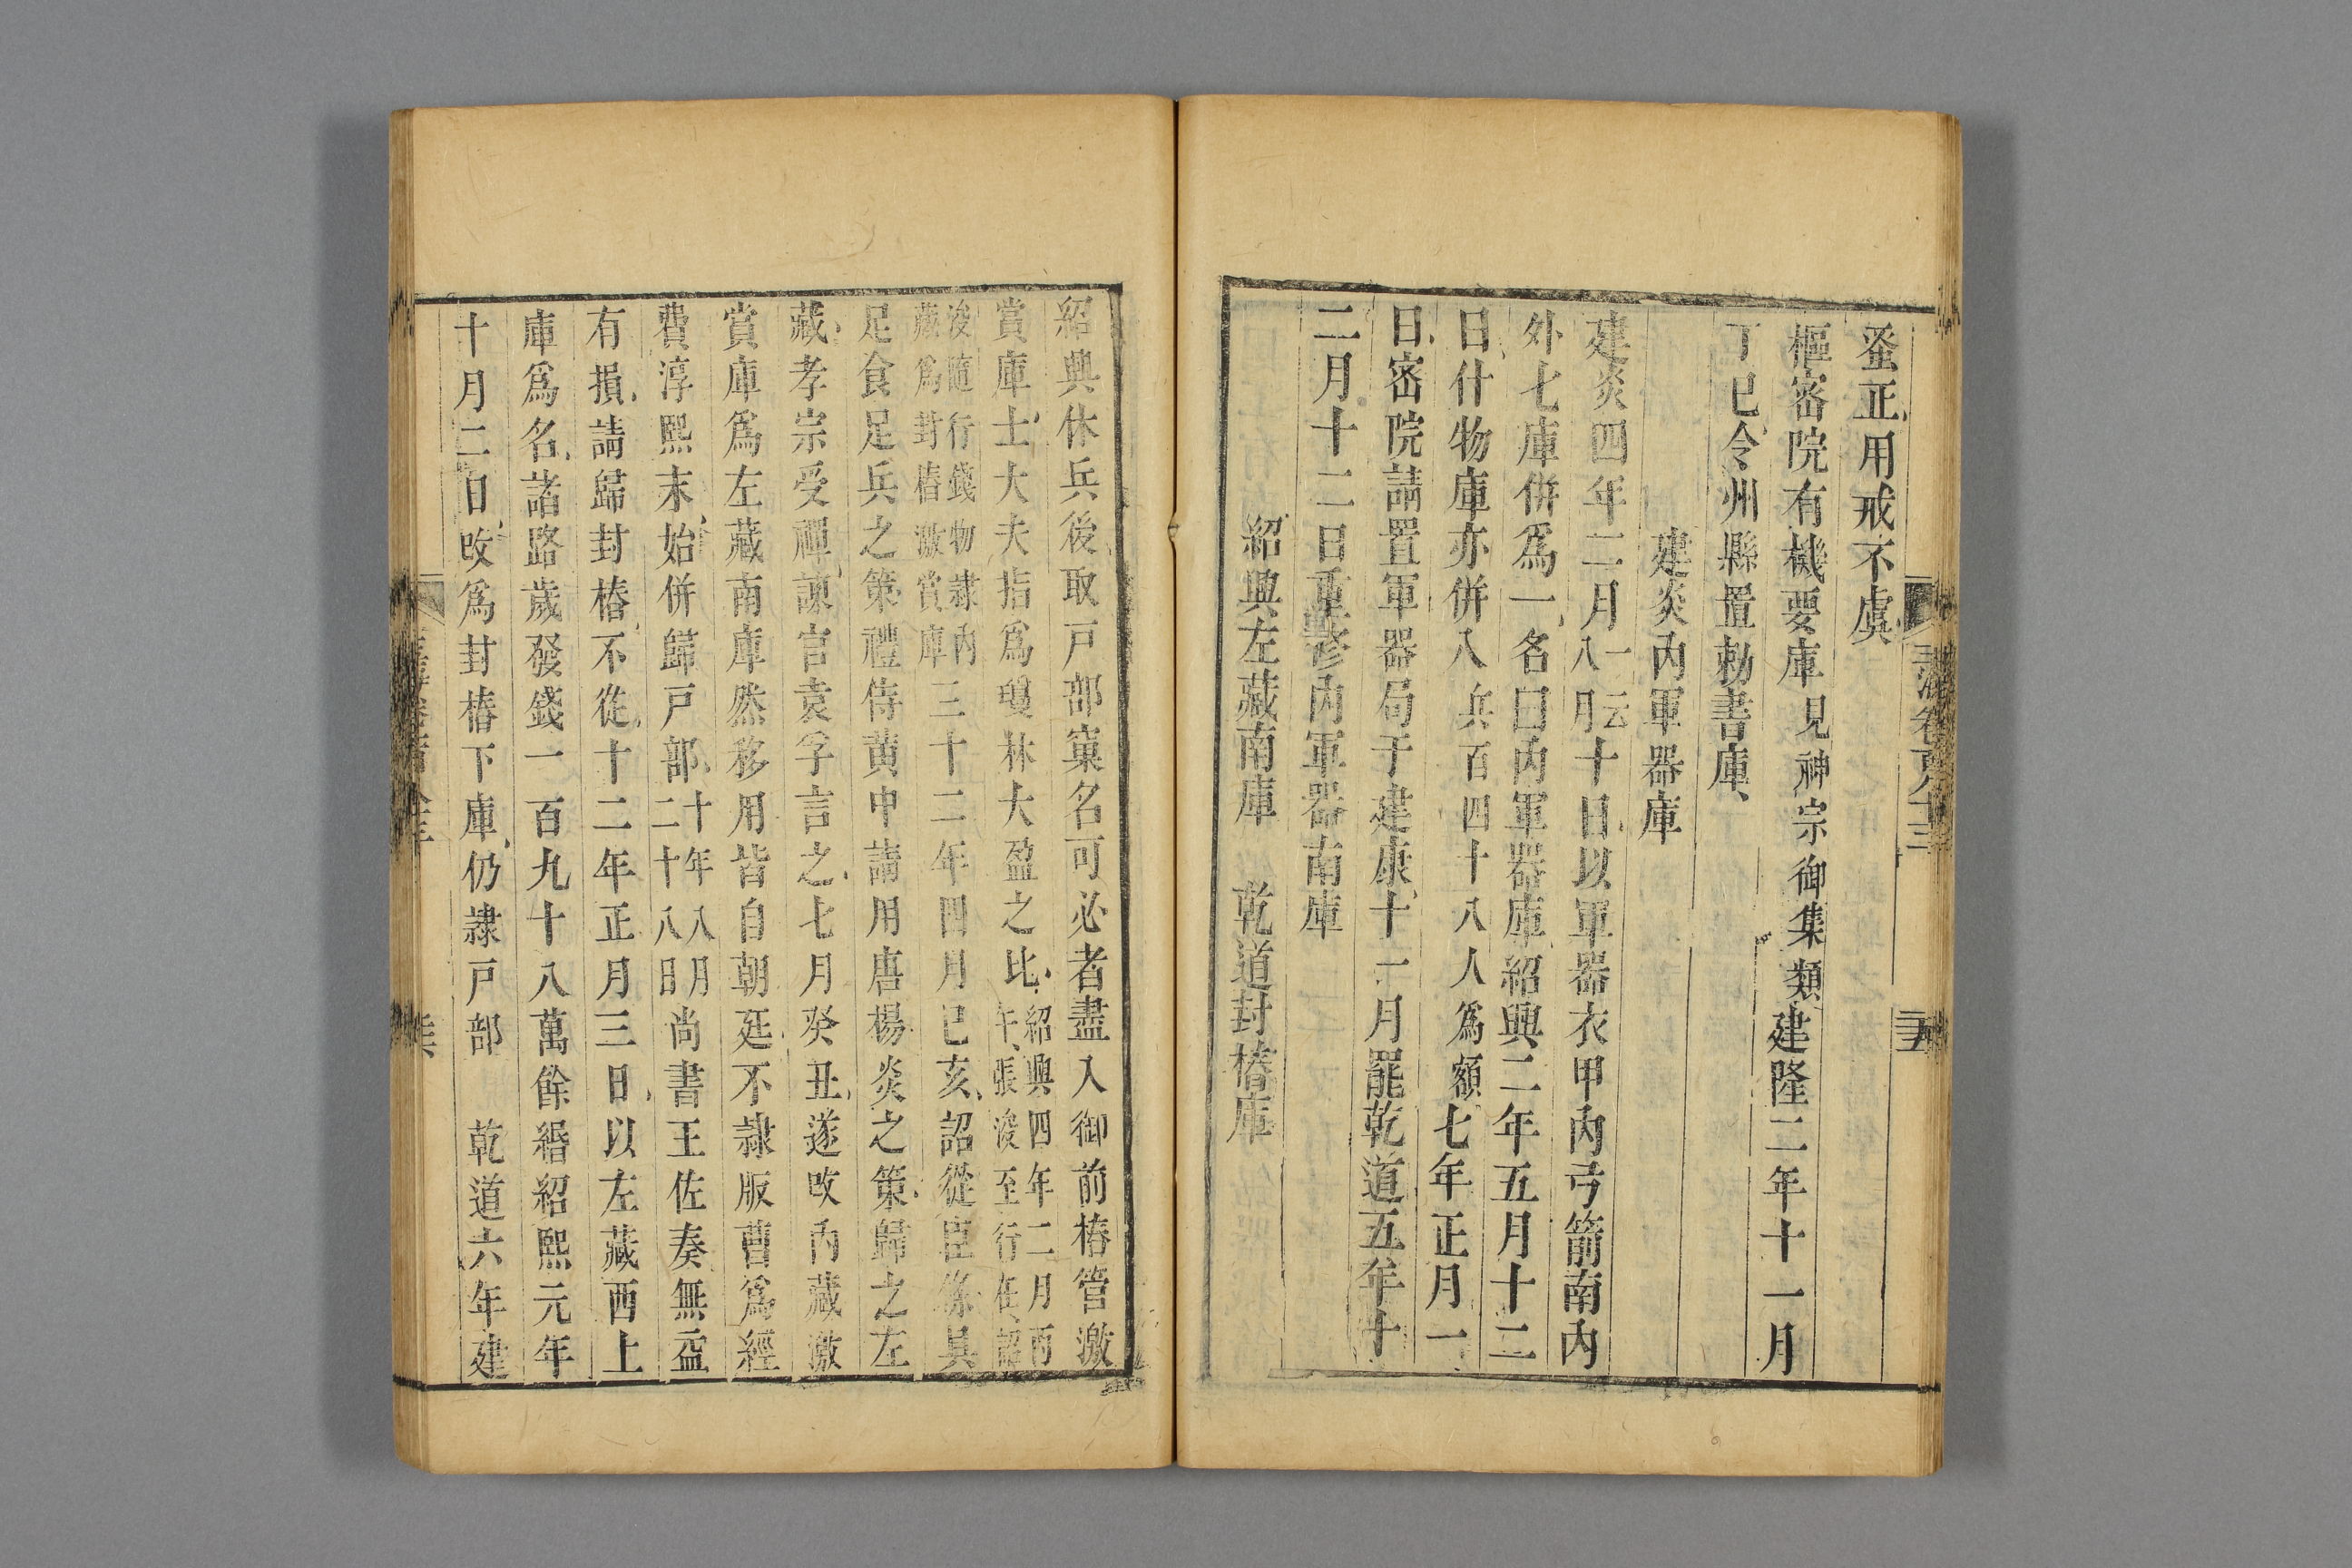 蚤正用戒不虞
樞密院有機要庫見神宗御集類建隆二年十一月
丁巳令州縣置勅書庫
建炎內軍器庫
建炎四年二月一云八月十日以軍器衣甲內弓箭南內
外七庫併爲一名曰內軍器庫紹興二年五月十二
日什物庫亦併入兵百四十八人爲額七年正月一
日密院請置軍器局于建康十一月罷乾道五年十
二月十二日重修內軍器南庫
紹興左藏南庫 乾道封樁庫
紹興休兵後取戸部窠名可必者盡入御前樁管激
賞庫士大夫指爲瓊林大盈之比紹興四年二月丙午張浚至行在詔
浚隨行錢物隷內藏爲封樁激賞庫三十二年四月己亥詔從臣條具
足食足兵之策禮侍黄中請用唐楊炎之策歸之左
藏孝宗受禪諫官袁孚言之七月癸丑遂改內藏激
賞庫爲左藏南庫然移用皆自朝廷不隷版曹爲經
費淳熙末始併歸戸部十年八月二十八日尚書王佐奏無益
有損請歸封樁不從十二年正月三日以左藏西上
庫爲名諸路歲發錢一百九十八萬餘緡紹熙元年
十月二日改爲封樁下庫仍隷戸部 乾道六年建